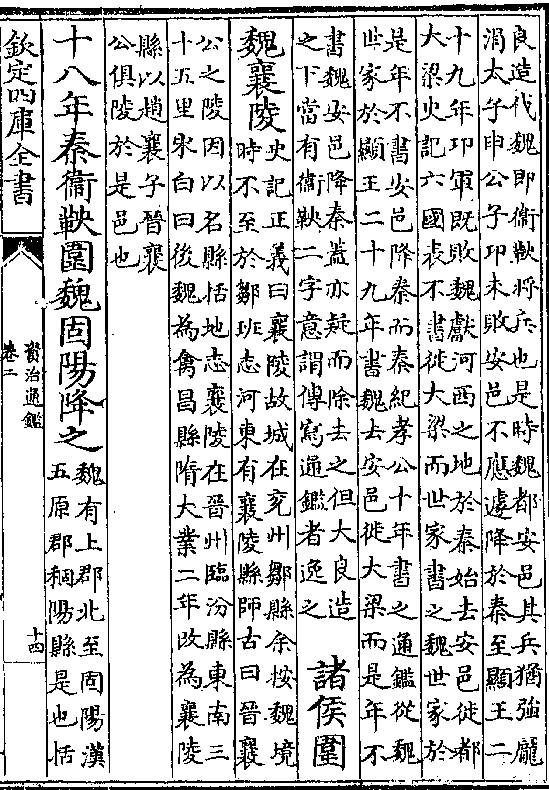 良造代魏即衛鞅將兵也是時魏都安邑其兵猶強龐
涓太子申公子卬未敗安邑不應遽降於秦至顯王二
十九年卬軍既敗魏獻河西之地於秦始去安邑徙都
大梁史記六國表不書徙大梁而世家書之魏世家於
是年不書安邑降秦而秦紀孝公十年書之通鑑從魏
世家於顯王二十九年書魏去安邑徙大梁而是年不
書魏安邑降秦蓋亦疑而除去之但大良造
之下當有衛鞅二字意謂傳寫通鑑者逸之
諸侯圍
魏襄陵
史記正義曰襄陵故城在兗州鄒縣余按魏境
時不至於鄒班志河東有襄陵縣師古曰晉襄
公之陵因以名縣括地志襄陵在晉州臨汾縣東南三
十五里宋白曰後魏為禽昌縣隋大業二年改為襄陵
縣以趙襄子晉襄
公俱陵於是邑也
十八年秦衞鞅圍魏固陽降之
魏有上郡北至固陽漢
五原郡稒陽縣是也括
欽定四庫全書
資治通鑑
卷二
十四